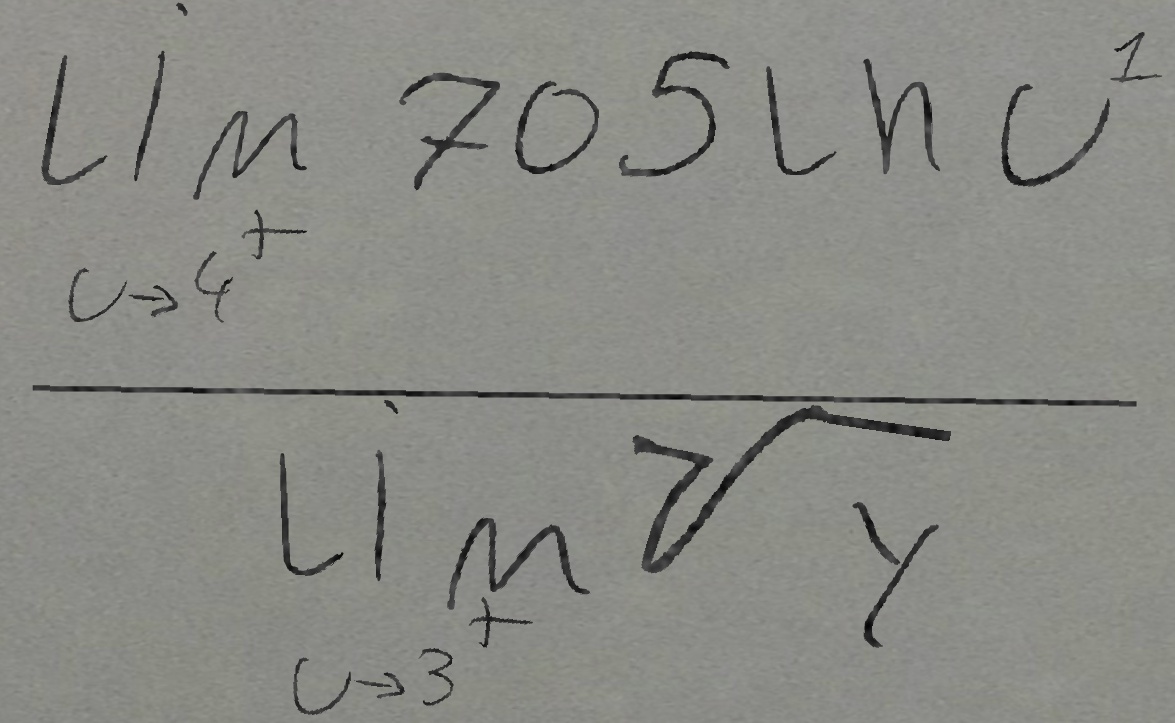 \frac{\lim_{u \to 4^+} 705 \ln u^1}{\lim_{u \to 3^+} \sqrt{y}}